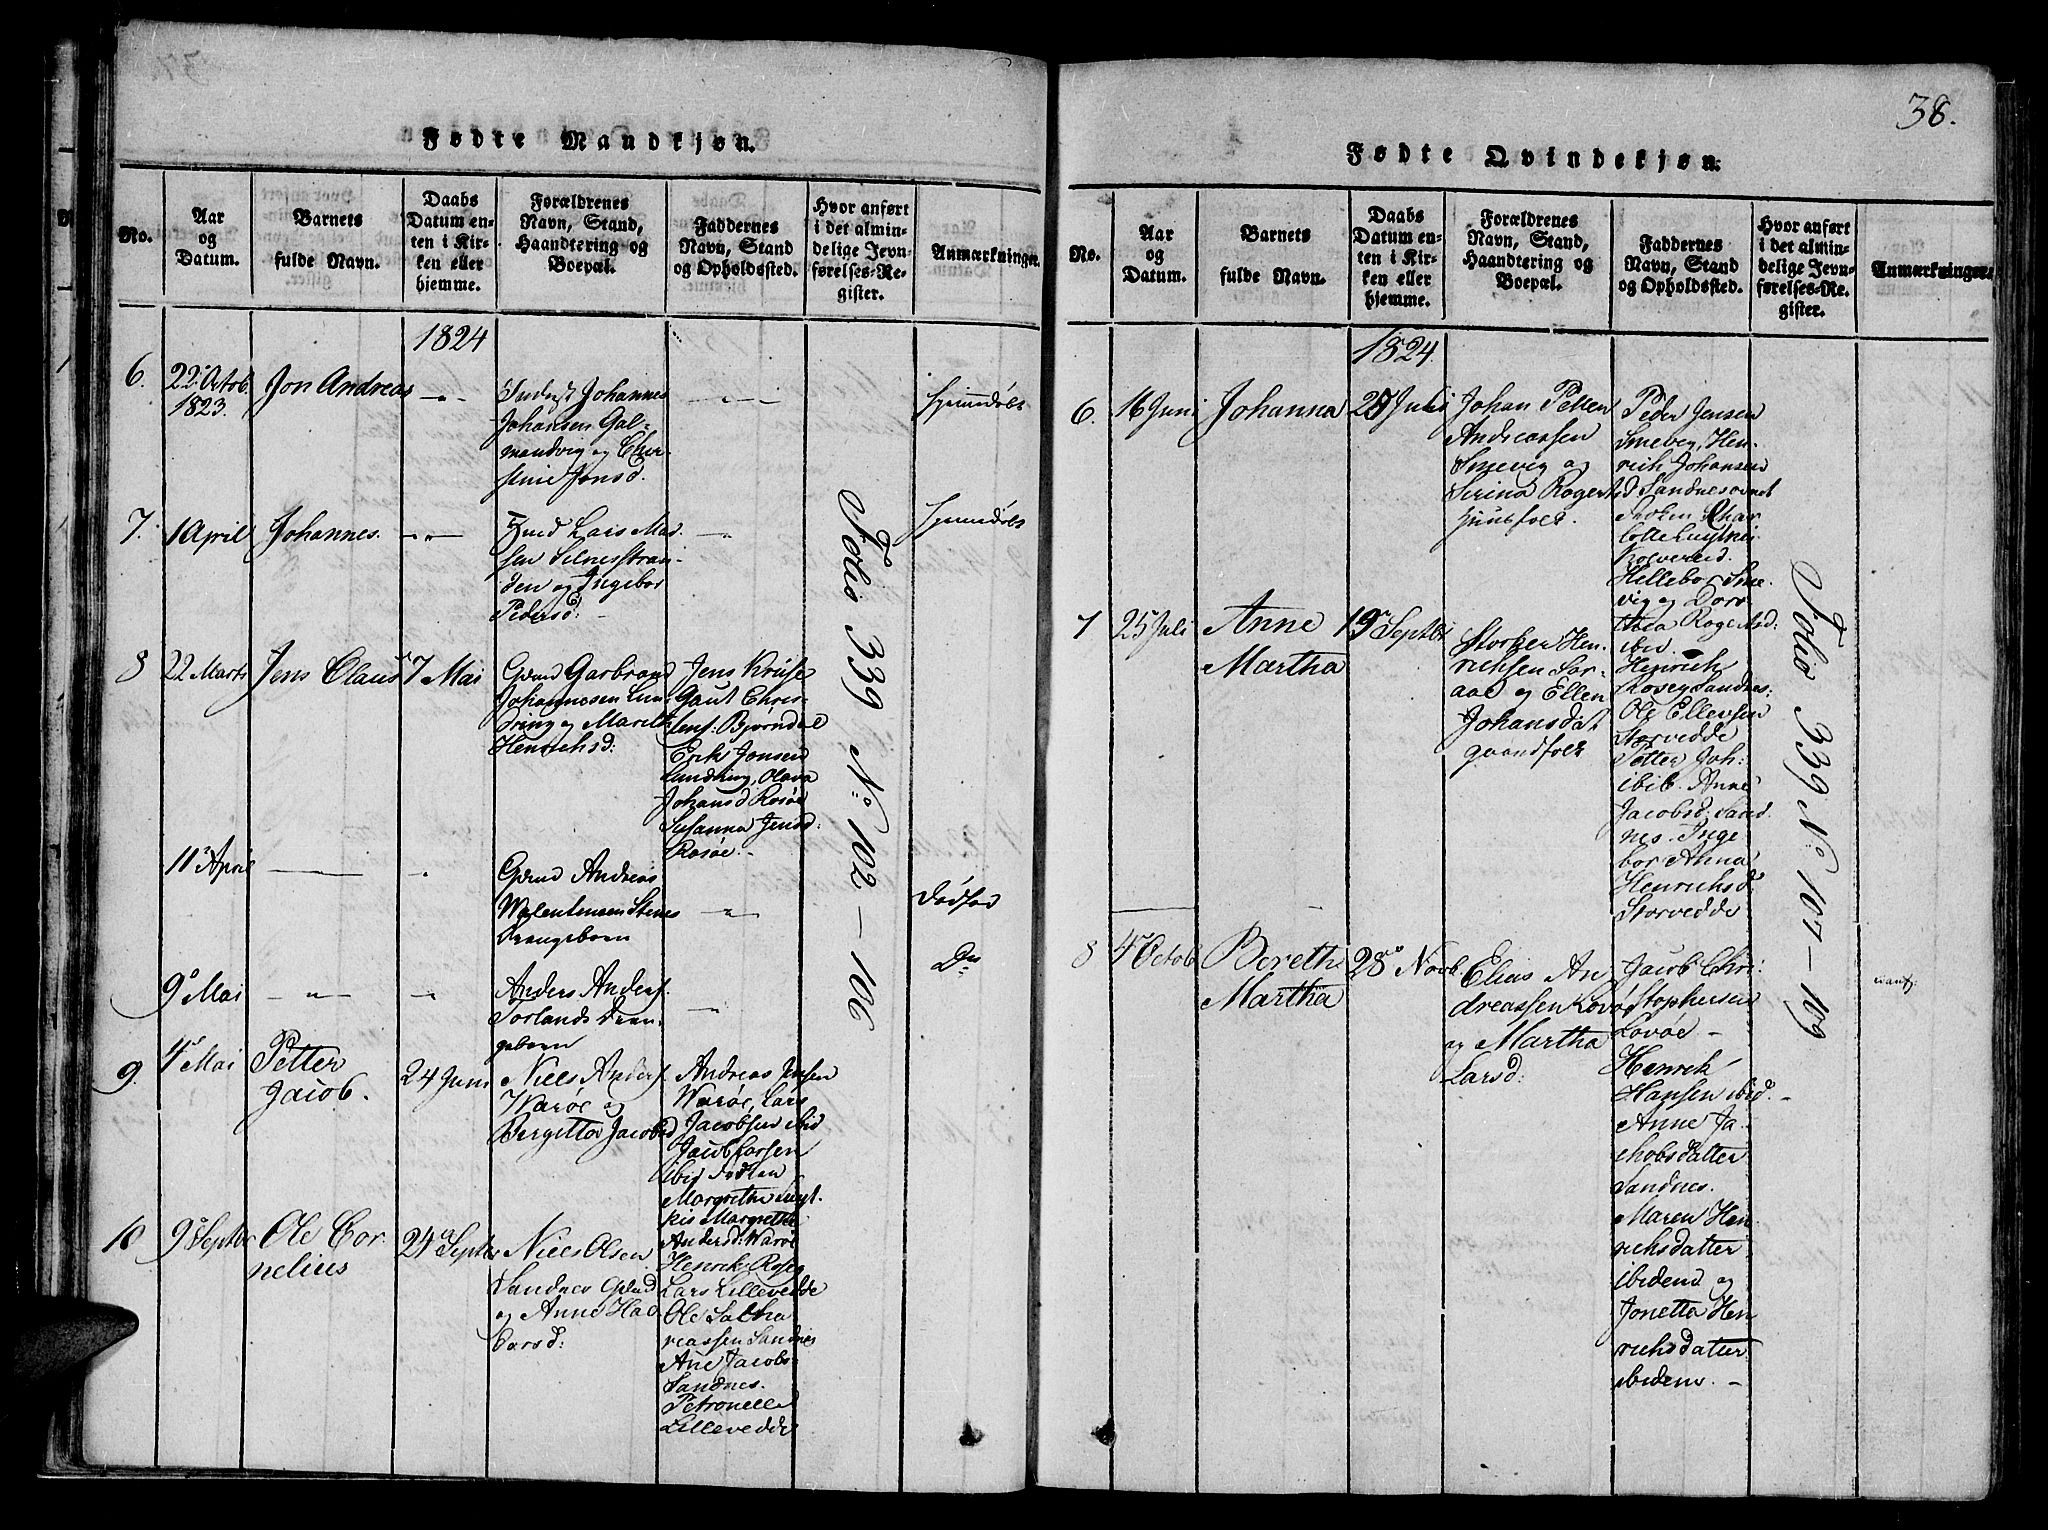 Fødte Mandkjøn.
No.
Aar
og
Datum.
Barnets
fulde Navn.
Daabs
Datum en-
ten i Kir-
ken eller
hjemme.
Forældrenes
Navn, Stand,
Haandtering og
Boepæl.
Faddernes
Navn, Stand
og Opholdssted.
Hvor anført
i det almin-
delige Jevn-
førelses-Re-
gister.
Anmærkninger.
1824
6.
22 Octob
1823.
Jon Andreas
Johannes
Johansen Gal-
mandvig og
Jonsd.
Hjemedøbt
7.
1 April
Johannes.
Lars Mad
sen Selnesstran-
den og Ingebor
Pedersd:
Hjemedøbt
8
22 Marts
Jens Claus
7 Mai
Gmd Garbrand
Johannesen Lun-
dring og Marith
Henrichsd:
Jens Kruse
Gaut Chris-
tens: Bjørndal
Erik Jonsen
Lundring, Olava
Johansd Rosøe
Susanna Jensd:
Rosøe.
11 April
Gmd Andreas
Walentinsen Stenes
Drængebarn
Dødfød
9 Mai
Anders Anders.
Torlands Dræn-
gebarn
Do
9.
4 Mai
Petter
Jacob.
24 Juni
Niels Anders.
Warøe og
Bergitta Jacobsd
Andreas Jensen
Warøe, Lars
Jacobsen ibid
Jacob Larsen
ibid
Margrethe
Margrethe
Andersd: Warøe
10
9 Septbr
Ole Cor
nelius
24 Septbr
Niels Olsen
Sandnes Gmd
og Anne Had
varsd:
Henrik Roseg
Lars Lillevedde
Ole Zacha
reassen Sandnes
Ane Jacobs
Sandnes.
Petronelle
Lillevedde
Folio 339 No 102 — 106
38.
Fødte Qvindekjøn.
No.
Aar
og
Datum.
Barnets
fulde Navn.
Daabs
Datum en-
ten i Kir-
ken eller
hjemme.
Forældrenes
Navn, Stand,
Haandtering og
Boepæl.
Faddernes
Navn, Stand
og Opholdssted.
Hvor anført
i det almin-
delige Jevn-
førelses-Re-
gister.
Anmærkninger.
1824.
6.
16 Juni
Johanna
Juli
Johan Petter
Andreassen
Smevig og
Serina Rogertsd
Huusfolk.
Peder Jensen
Smevig, Hen-
rich Johansen
Sandnes
Char
lotte
Kolvereid.
Hellebor Sme-
vig og Doro
thea Rogertsd:
ibid.
7
25 Juli
Anne
Martha
19 Septbr
Storker Hen-
richsen Sor-
aae og Ellen
Johansdat
Gaardfolk
Henrich
Roseg Sandnes:
Ole Ellevsen
Storvedde
Petter Joh:
ibid. Anne
Jacobsd: Sand
nes. Inge
bor Anna
Henrichsd:
Storvedde
8
4 Octob
Bereth
Martha
28 Novb
Elias An
dreassen Lovøe
og Martha
Larsd:
Jacob Chri-
stophersen
Lovøe —
Henrik
Hansen ibid. —
Anne Ja-
chobsdatter
Sandnes.
Maren Hen
richsdatter
ibidem og
Jonetta Hen
richsdatter
ibidem. —
Folio 339 No 107 — 109